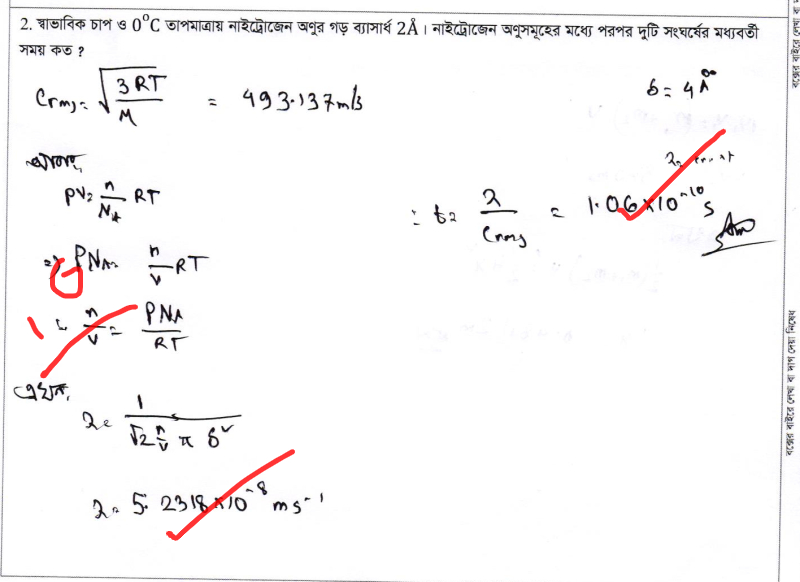 2. স্বাভাবিক চাপ ও 0°C তাপমাত্রায় নাইট্রোজেন অণুর গড় ব্যাসার্ধ 2Å। নাইট্রোজেন অণুসমূহের মধ্যে পরপর দুটি সংঘর্ষের মধ্যবর্তী
সময় কত ?
Crms = √(3RT/M) = 493.137 m/s
σ = 4Å
আবার,
PV = n/NA RT
⇒ PNA = n/V RT
∴ n/V = PNA/RT
এখন,
λ = 1/(√2 n/V π σ²)
λ = 5.2318×10⁻⁸ ms⁻¹
∴ t = λ/Crms = 1.06×10⁻¹⁰ s
Ans
বক্সের বাইরে লেখা বা দাগ দেয়া নিষেধ